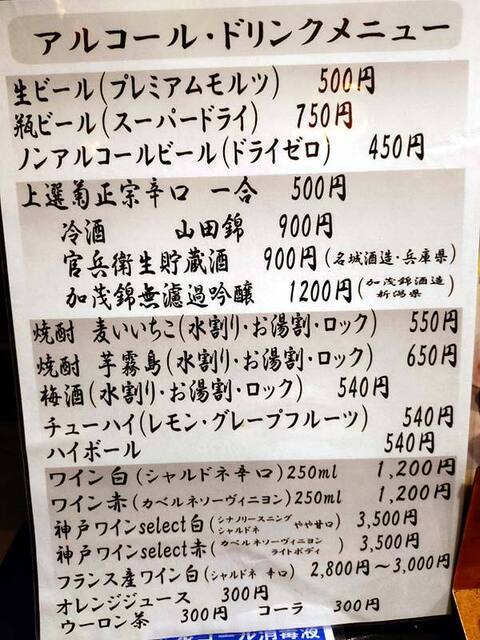 アルコール・ドリンクメニュー
生ビール(プレミアムモルツ) 500円
瓶ビール(スーパードライ) 750円
ノンアルコールビール(ドライゼロ) 450円
上選菊正宗辛口 一合 500円
冷酒 山田錦 900円
官兵衛生貯蔵酒 900円(名城酒造・兵庫県)
加茂錦無濾過吟醸 1200円(加茂錦酒造 新潟県)
焼酎 麦いいちこ(水割り・お湯割・ロック) 550円
焼酎 芋霧島(水割り・お湯割・ロック) 650円
梅酒(水割り・お湯割・ロック) 540円
チューハイ(レモン・グレープフルーツ) 540円
ハイボール 540円
ワイン白(シャルドネ辛口)250ml 1,200円
ワイン赤(カベルネソーヴィニヨン)250ml 1,200円
神戸ワインselect白(シナノリースニング シャルドネ やや甘口) 3,500円
神戸ワインselect赤(カベルネソーヴィニヨン ライトボディ) 3,500円
フランス産ワイン白(シャルドネ 辛口) 2,800〜3,000円
オレンジジュース 300円
ウーロン茶 300円 コーラ 300円
アルコール消毒液